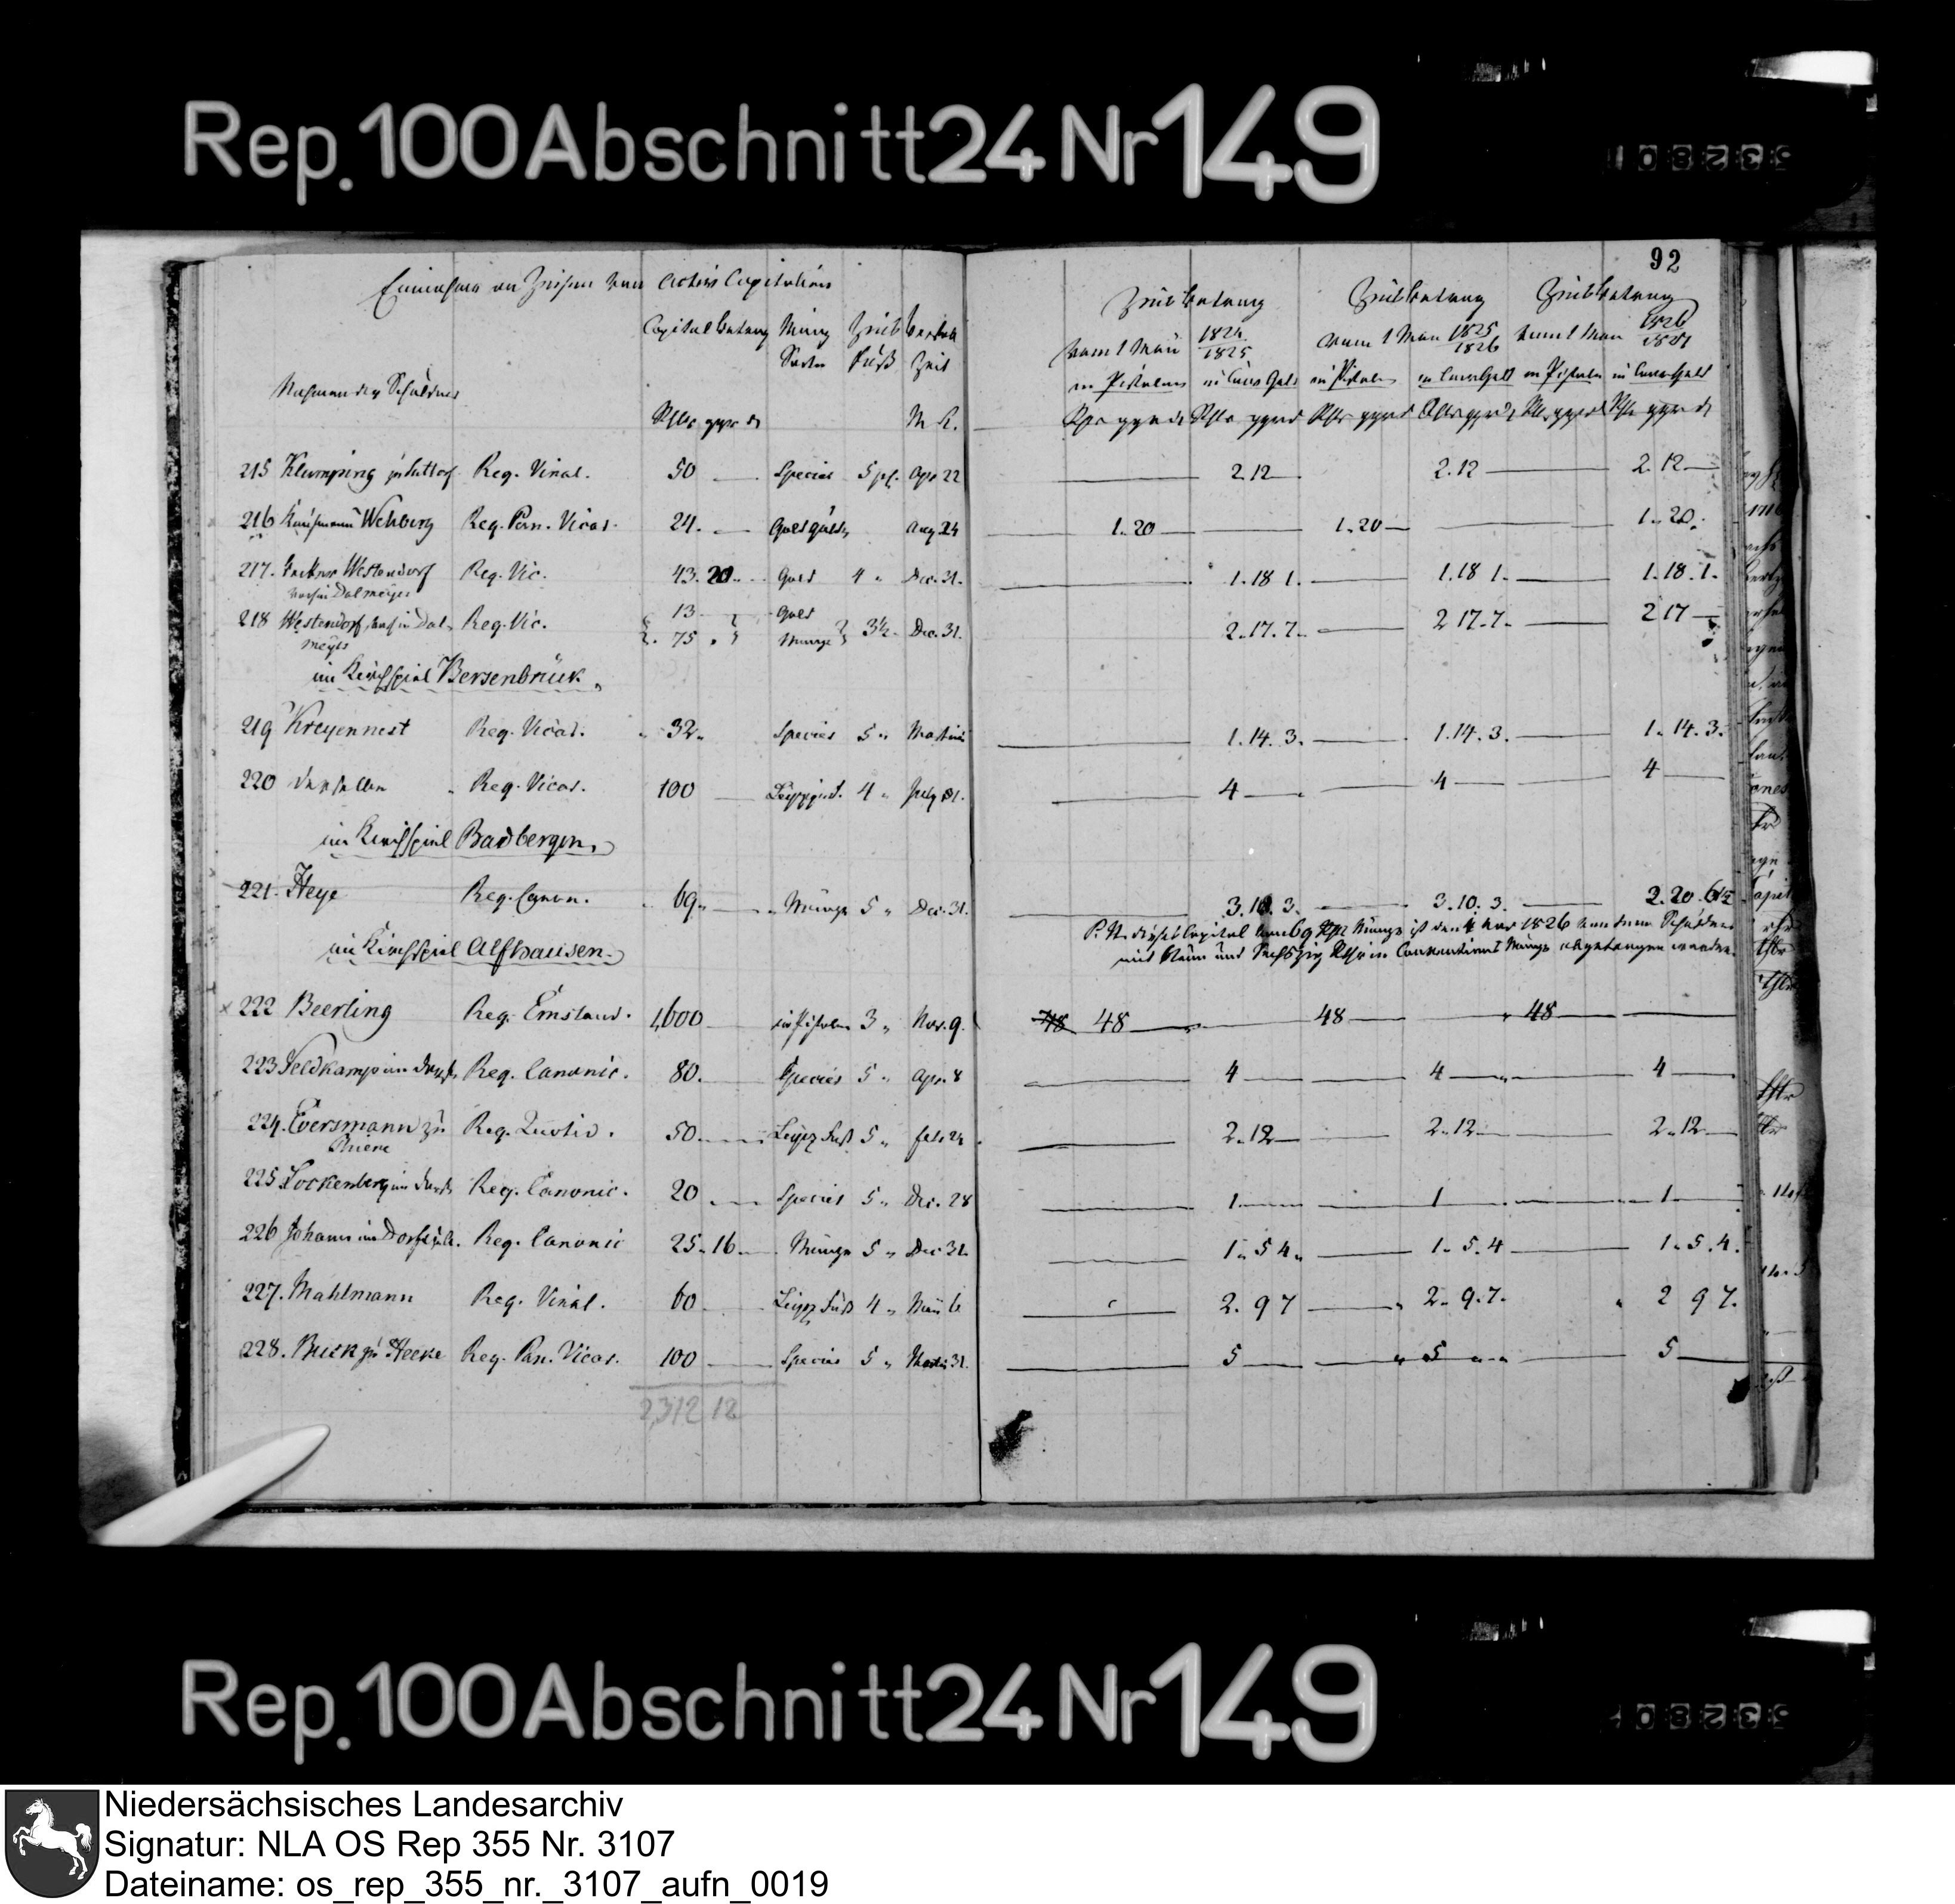 Rep. 100 Abschnitt 24 Nr 149
92
Einnahme an Zinsen von activis Capitalien
Capital betrag Münz Zins Verfall
Sorte Fuß Zeit
Nahmen der Schuldner
Rthlr ggr d
Zinsbetrag Zinsbetrag Zinsbetrag
vom 1 Mai 1824/1825 vom 1 Mai 1825/1826 vom 1 Mai 1826/1827
in Pistolen in Cour Geld in Pistolen in Cour Geld in Pistolen in Cour Geld
Rthlr ggr d Rthlr ggr d Rthlr ggr d Rthlr ggr d Rthlr ggr d Rthlr ggr d
215 Klumping Reg. Vical. 50 Species 5 Apr 22 2.12 2.12 2.12
216 Kaufmann Wehberg Reg. Pan. Vicar. 24. Goldgulden Aug 24 1.20 1.20 1.20
217. Westendorf Reg. Vic. 43. 20 Gold 4 Dec. 31. 1.18 1. 1.18 1. 1.18.1.
vorhin Dalmeyer
218 Westendorf, vorhin Dal- Reg. Vic. 13 Gold
meyer 75 Münze 3½ Dec. 31. 2.17.7. 2 17.7. 2 17
im Kirchspiel Bersenbrück.
219 Kreyennest Reg. Vicar. 32 Species 5 Martini 1.14.3. 1.14.3. 1.14.3.
220 derselbe Reg. Vicar. 100 4 July 31. 4 4 4
im Kirchspiel Badbergen.
221. Heye Reg. Canon. 69 Münze 5 Dec. 31. 3.10.3. 3.10.3. 2.20.6½
P. N. dieses Capital von 69 Rthlr Münze ist den 1826 von dem Schuldner
mit Neun und Sechszig Rthlr in Conventions Münze abgetragen worden.
im Kirchspiel Alfhausen.
222 Beerling Reg. Emstand. 1,600 in Pistolen 3 Nov. 9. 48 48 48 48
223 Feldkamp im Dorfe Reg. Canonic. 80. Species 5 Apr. 8 4 4 4
224. Eversmann zu Reg. 50. Leipz Fuß 5 Febr 24 2.12 2.12 2.12
Thiene
225 Lockenberg im Dorfe Reg. Canonic. 20 Species 5 Dec. 28 1 1 1
226 Johann im Dorfe Reg. Canonic 25. 16. Münze 5 Dec 31. 1.5 4. 1.5.4 1.5.4.
227. Mahlmann Reg. Vical. 60 Leipz Fuß 4 Mai 6 2.9 7 2.9.7. 2 9 7.
228. Buck zu Heeke Reg. Pan. Vicar. 100 Species 5 31. 5 5 5
2,312 12
Rep. 100 Abschnitt 24 Nr 149
Niedersächsisches Landesarchiv
Signatur: NLA OS Rep 355 Nr. 3107
Dateiname: os_rep_355_nr._3107_aufn_0019